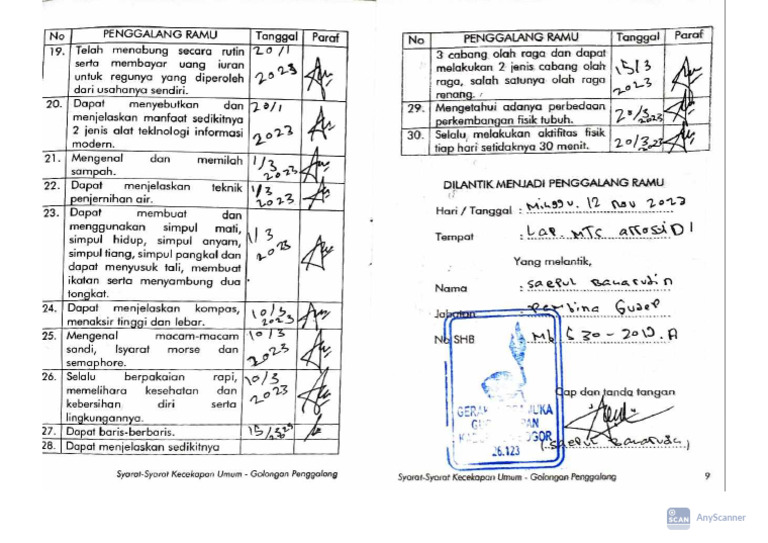 No PENGGALANG RAMU Tanggal Paraf
19. Telah menabung secara rutin 20/1
serta membayar uang iuran
untuk regunya yang diperoleh 2023
dari usahanya sendiri.
20. Dapat menyebutkan dan 20/1
menjelaskan manfaat sedikitnya
2 jenis alat teklnologi informasi 2023
modern.
21. Mengenal dan memilah 1/3
sampah. 2023
22. Dapat menjelaskan teknik 1/3
penjernihan air. 2023
23. Dapat membuat dan
menggunakan simpul mati,
simpul hidup, simpul anyam, 1/3
simpul tiang, simpul pangkal dan 2023
dapat menyusuk tali, membuat
ikatan serta menyambung dua
tongkat.
24. Dapat menjelaskan kompas, 10/3
menaksir tinggi dan lebar. 2023
25. Mengenal macam-macam 10/3
sandi, Isyarat morse dan 2023
semaphore.
26. Selalu berpakaian rapi, 10/3
memelihara kesehatan dan 2023
kebersihan diri serta
lingkungannya.
27. Dapat baris-berbaris. 15/3
28. Dapat menjelaskan sedikitnya
Syarat-Syarat Kecekapan Umum - Golongan Penggalang
No PENGGALANG RAMU Tanggal Paraf
3 cabang olah raga dan dapat
melakukan 2 jenis cabang olah 15/3
raga, salah satunya olah raga 2023
renang.
29. Mengetahui adanya perbedaan 20/3
perkembangan fisik tubuh. 2023
30. Selalu melakukan aktifitas fisik
tiap hari setidaknya 30 menit. 20/3 2023
DILANTIK MENJADI PENGGALANG RAMU
Hari / Tanggal : Minggu. 12 Nov 2023
Tempat : Lap. MTS
Yang melantik,
Nama : Saepul Baharudin
Jabatan : Pembina Gudep
No SHB
Cap dan tanda tangan
26.123
Syarat-Syarat Kecekapan Umum - Golongan Penggalang 9
SCAN AnyScanner